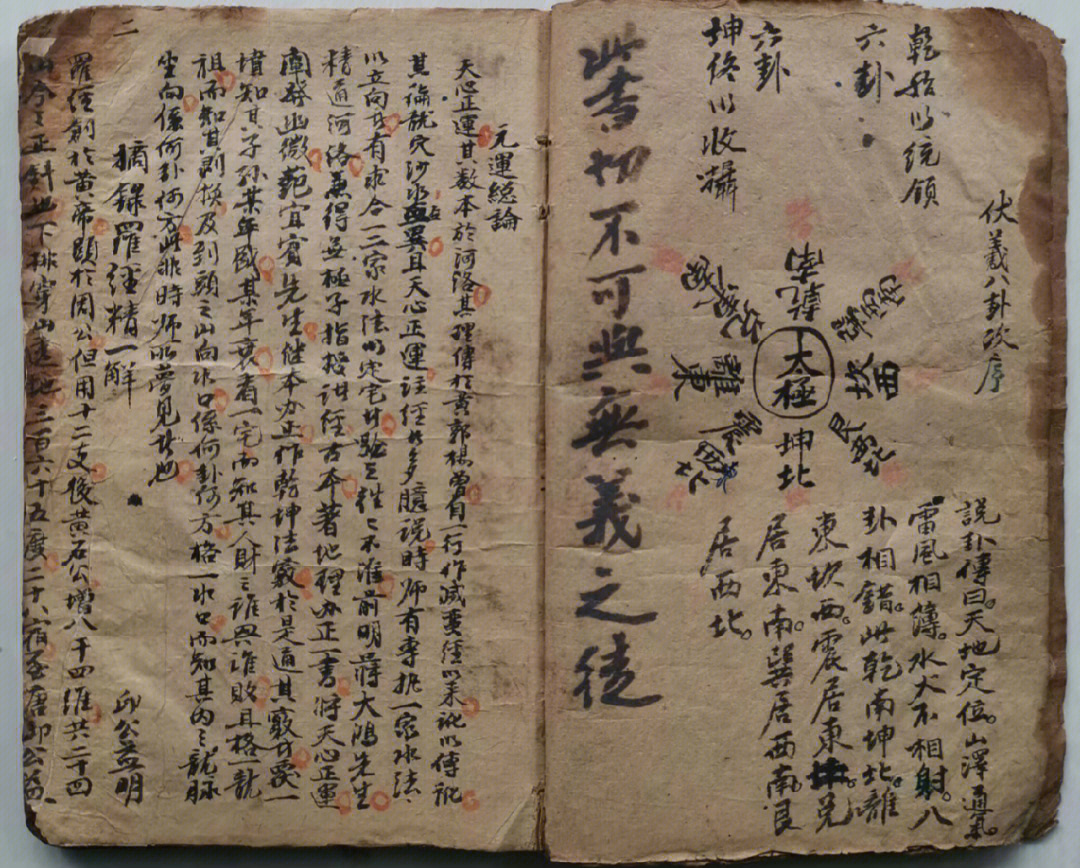 伏羲八卦次序
乾始以统領
六卦
坤终以收攝
六卦
乾南
兌東南
離東
震東北
太極
巽西南
坎西
艮西北
坤北
說卦傳曰。天地定位。山澤通氣。
雷風相薄。水火不相射。八
卦相錯。此乾南坤北。離
東坎西。震居東北兌
居東南。巽居西南艮
居西北。
此書切不可與無義之徒
元運總論
天心正運其数本於河洛其理傳於黄郭楊曾自一行作滅蛮經以来訛以傳訛
其論龍穴沙水無異且天心正運註經者多臆說時师有專执一家水法
以立向者有求合二家水法以定宅者驗之往々不准前明蒋大鴻先生
精通河洛兼得無極子指授訣經古本著地理办正一書将天心正運
闡發幽微範宜賓先生继本办正作乾坤法竅於是通其竅者覌一
墳知其子孫某年盛某年衰看一宅而知其人財之誰興誰敗且格一龍
祖而知其剥换及到頭之山向水口係何卦何方格一水口而知其内之龍脉
坐向係何卦何方此非時师所夢見者也
摘錄羅經精一解 邱公益明
羅經創於黄帝顕於周公但用十二支後黄石公增八干四維共二十四
山今之正針也下排穿山透地三百六十五度二十八宿至唐邱公益
二